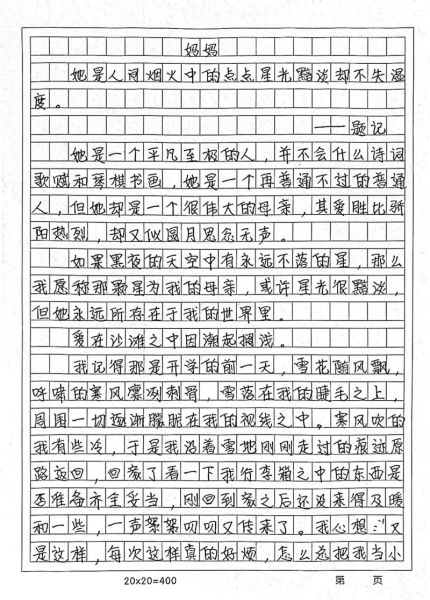 妈妈
她是人间烟火中的点点星光黯淡却不失温
度。
——题记
她是一个平凡至极的人，并不会什么诗词
歌赋和琴棋书画，她是一个再普通不过的普通
人，但她却是一个很伟大的母亲，其爱胜比骄
阳热烈，却又似圆月思念无声。
如果黑夜的天空中有永远不落的星，那么
我愿称那颗星为我的母亲，或许星光很黯淡，
但她永远所存在于我的世界里。
爱在沙滩之中因潮起搁浅。
我记得那是开学的前一天，雪花随风飘，
呼啸的寒风凛冽刺骨，雪落在我的睫毛之上，
周围一切逐渐朦胧在我的视线之中。寒风吹的
我有些冷，于是我沿着雪地刚刚走过的痕迹原
路返回，回家了看一下我行李箱之中的东西是
否准备齐全妥当，刚回到家之后还没来得及暖
和一些，一声絮絮叨叨又传来了。我心想："又
是这样，每次这样真的好烦，怎么总把我当小
20x20=400
第 页